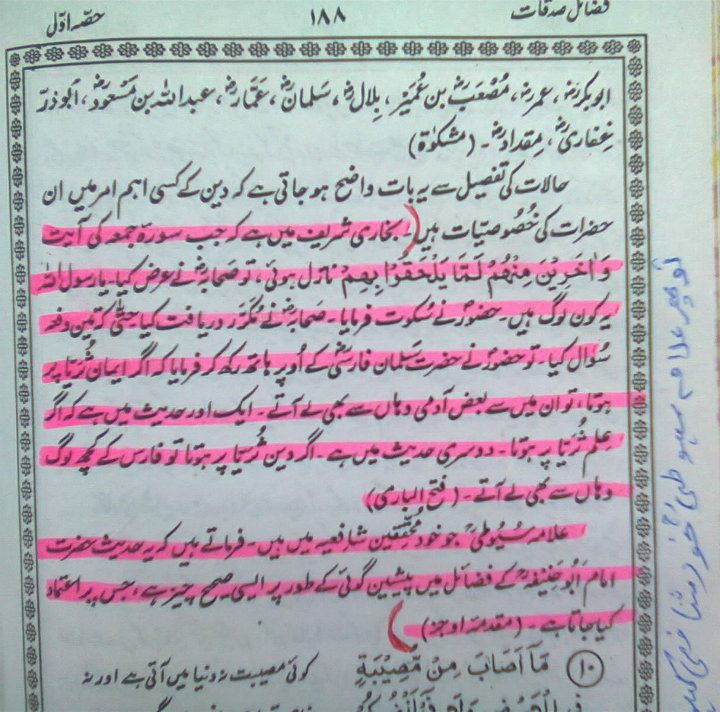 فضائل صدقات ۱۸۸ حصہ اوّل
ابوبکرؓ، عمرؓ، مُصْعَبؓ بن عُمَیْر، بِلالؓ، سَلمانؓ، عَمّارؓ، عبداللہ بن مَسْعودؓ، ابوذرّ
غِفاریؓ، مِقدادؓ۔ (مشکوٰۃ)
حالات کی تفصیل سے یہ بات واضح ہوجاتی ہے کہ دین کے کسی اہم امر میں ان
حضرات کی خُصوصیّات ہیں۔ بخاری شریف میں ہے کہ جب سورۂ جمعہ کی آیت
وَاٰخَرِیْنَ مِنْہُمْ لَمَّا یَلْحَقُوْا بِہِمْ نازل ہوئی، تو صَحابہؓ نے عرض کیا۔ یارسول اللہ
یہ کون لوگ ہیں۔ حضورؐ نے سُکوت فرمایا۔ صَحابہؓ نے مُکَرَّر دریافت کیا حتّٰی کہ تین دفعہ
سُؤال کیا۔ تو حضورؐ نے حضرت سَلمان فارسیؓ کے اُوپر ہاتھ رکھ کر فرمایا کہ اگر ایمان ثُریّا پر
ہوتا، تو ان میں سے بعض آدمی وہاں سے بھی لے آتے۔ ایک اور حدیث میں ہے کہ اگر
عِلم ثُریّا پر ہوتا۔ دوسری حدیث میں ہے۔ اگر دین ثُریّا پر ہوتا تو فارس کے کچھ لوگ
وہاں سے بھی لے آتے۔ (فتح الباری)
علامہ سُیُوطیؒ جو خود مُحقِّقین شافعیہ میں ہیں۔ فرماتے ہیں کہ یہ حدیث حضرت
امام ابُوحَنِیْفہؒ کے فضائل میں پیشین گوئی کے طور پر ایسی صحیح چیز ہے، جس پر اعتماد
کیا جاتا ہے۔ (مقدمۂ اوجز)
(۱۰) مَآ اَصَابَ مِنْ مُّصِیْبَۃٍ کوئی مصیبت نہ دنیا میں آتی ہے اور نہ